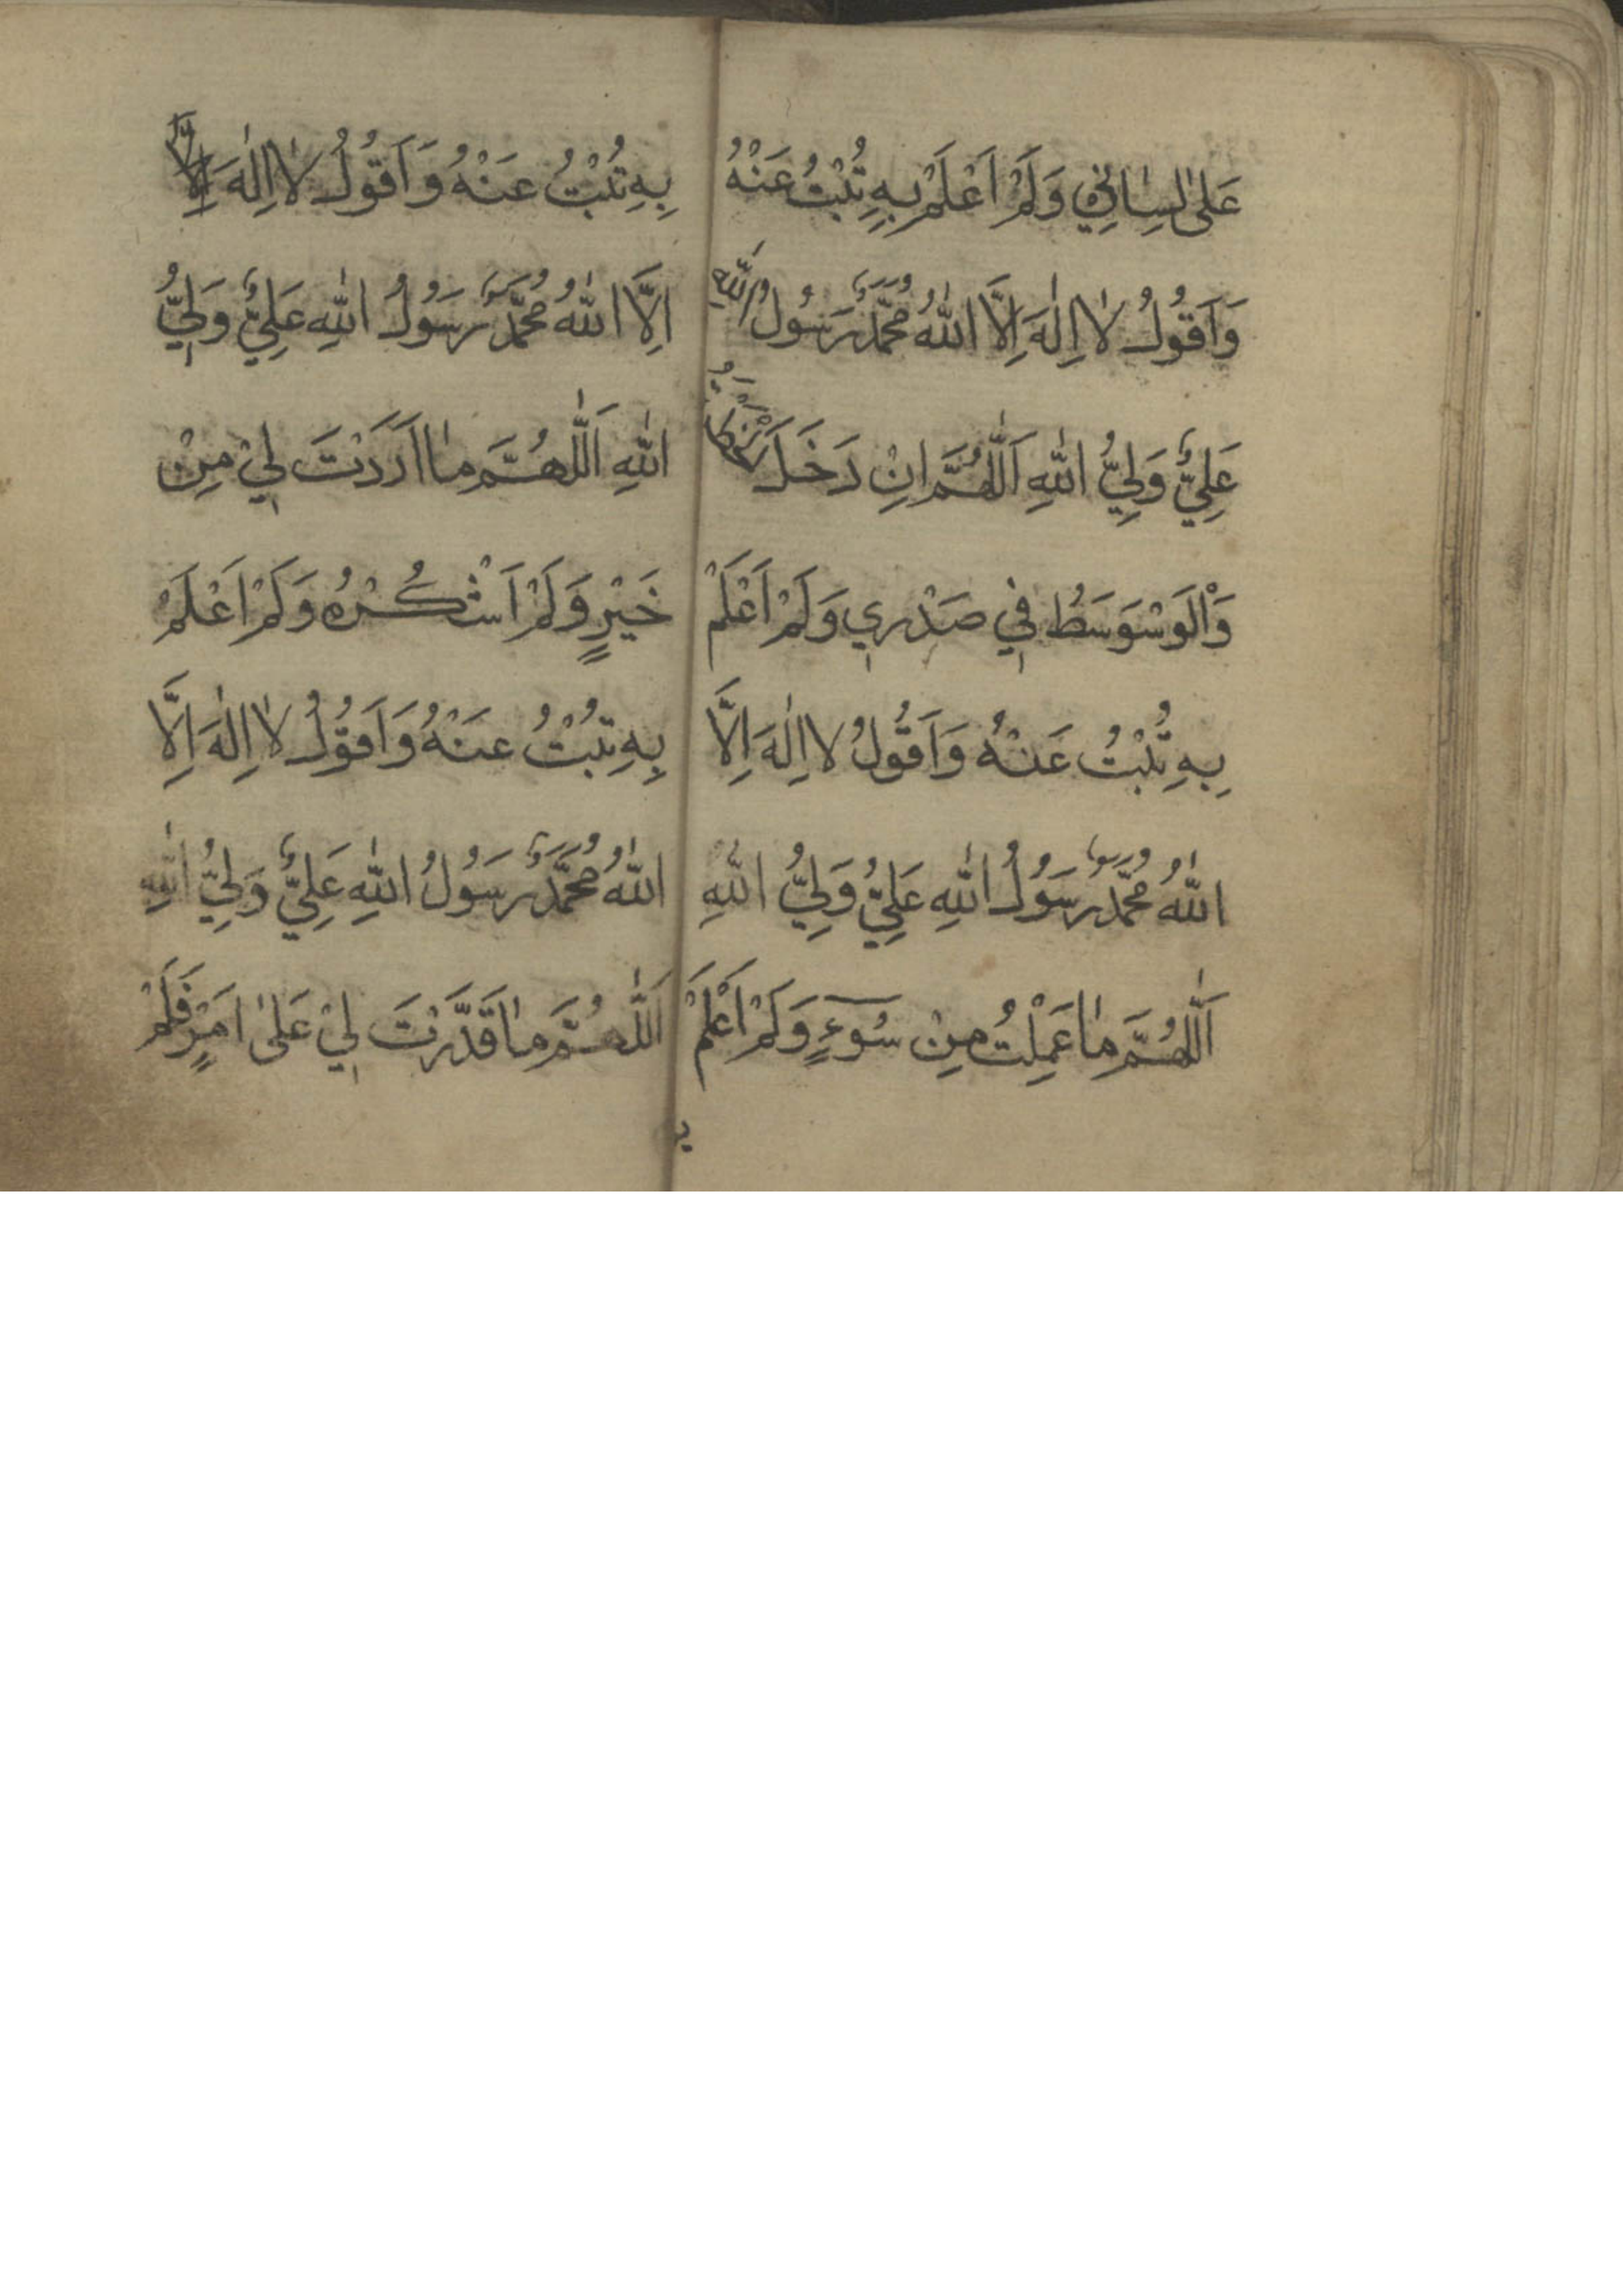 عَلىٰ لِسٰانِي وَلَمْ اَعْلَمْ بِهِ تُبْتُ عَنْهُ
وَاَقُولُ لٰا اِلٰهَ اِلَّا اللّٰهُ مُحَمَّدٌ رَسُولُ اللّٰهِ
عَلِيٌّ وَلِيُّ اللّٰهِ اَللّٰهُمَّ اِنْ دَخَلَ
وَالْوَسْوَسَطُ فِي صَدْرِي وَلَمْ اَعْلَمْ
بِهِ تُبْتُ عَنْهُ وَاَقُولُ لا اِلٰهَ اِلَّا
اللّٰهُ مُحَمَّدٌ رَسُولُ اللّٰهِ عَلِيٌّ وَلِيُّ اللّٰهِ
اَللّٰهُمَّ مٰا عَمِلْتُ مِنْ سُوٓءٍ وَلَمْ اَعْلَمْ
بِهِ تُبْتُ عَنْهُ وَاَقُولُ لٰا اِلٰهَ اِلَّا
اِلَّا اللّٰهُ مُحَمَّدٌ رَسُولُ اللّٰهِ عَلِيٌّ وَلِيُّ
اللّٰهِ اَللّٰهُمَّ مٰا اَرَدْتَ لِيْ مِنْ
خَيْرٍ وَلَمْ اَشْكُرْهُ وَلَمْ اَعْلَمْ
بِهِ تُبْتُ عَنْهُ وَاَقُولُ لٰا اِلٰهَ اِلَّا
اللّٰهُ مُحَمَّدٌ رَسُولُ اللّٰهِ عَلِيٌّ وَلِيُّ اللّٰهِ
اَللّٰهُمَّ مٰا قَدَّرْتَ لِيْ عَلىٰ اَمْرٍ فَلَمْ